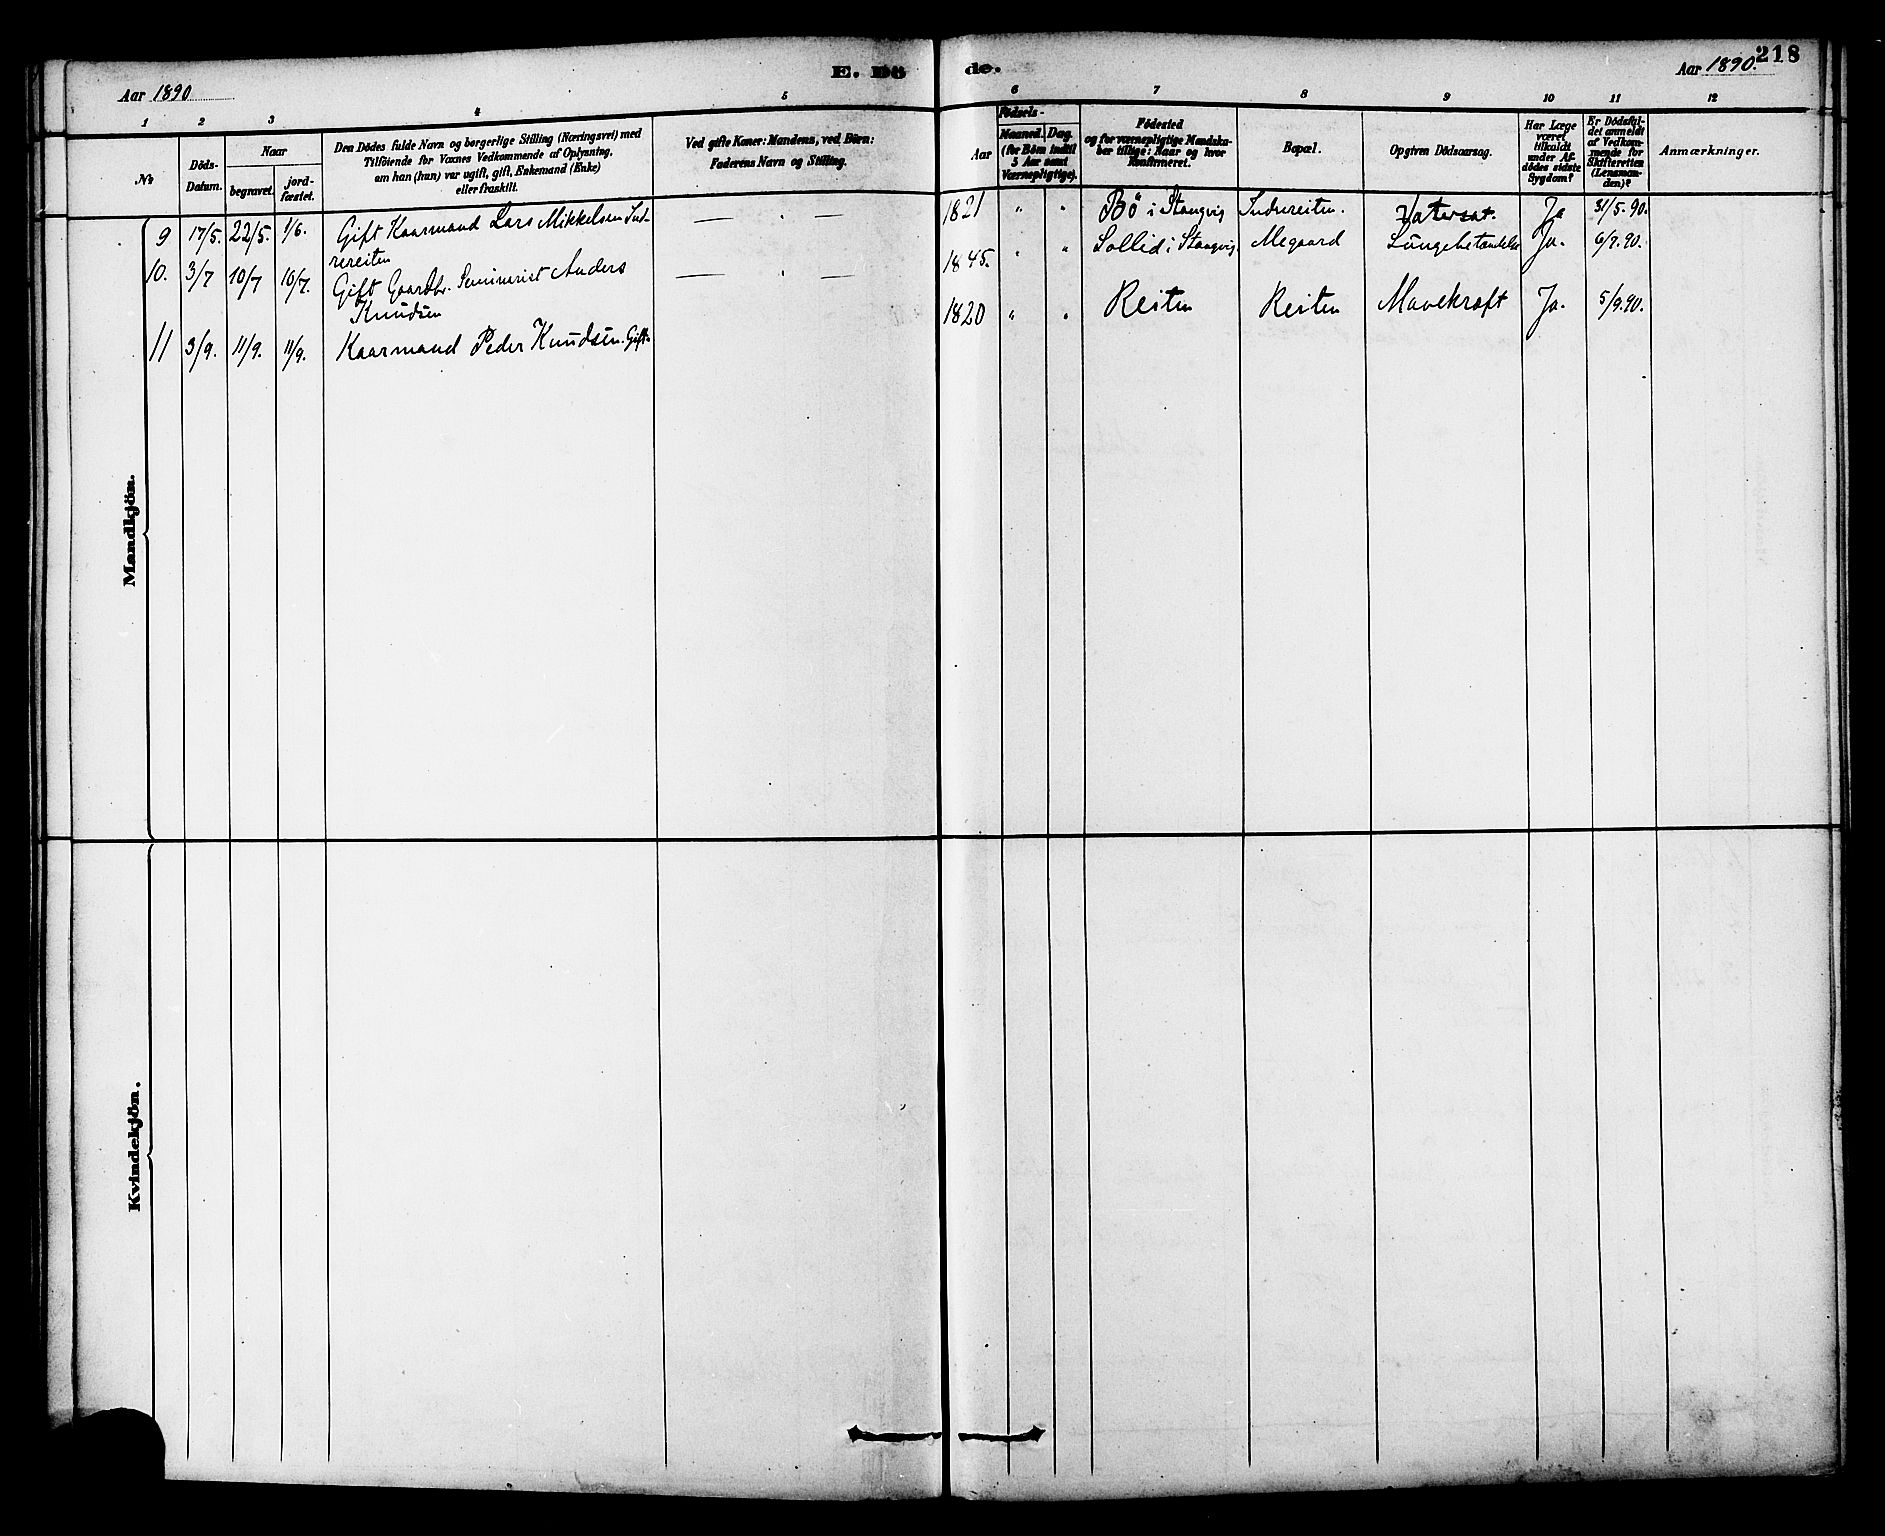 218
Aar 1890
E. Dö
de.
Aar 1890.
1 2 3 4 5 6 7 8 9 10 11 12
No
Döds-
Datum.
Naar
begravet.
jord-
fæstet.
Den Dödes fulde Navn og borgerlige Stilling (Næringsvei) med
Tilföiende for Voxnes Vedkommende af Oplysning,
om han (hun) var ugift, gift, Enkemand (Enke)
eller fraskilt.
Ved gifte Koner: Mandens, ved Börn:
Faderens Navn og Stilling.
Födsels-
Aar
Maaned.
Dag.
(for Börn indtil
5 Aar samt
Værnepligtige).
Födested
og for værnepligtige Mandska-
ber tillige: Naar og hvor
Konfirmeret.
Bopæl.
Opgiven Dödsaarsag.
Har Læge
været
tilkaldt
under Af-
dödes sidste
Sygdom?
Er Dödsfal-
det anmeldt
af Vedkom-
mende for
Skifteretten
(Lensman-
den)?
Anmærkninger.
Mandkjön.
9 17/5. 22/5. 1/6. Gift Kaarmand Lars Mikkelsen Ind-
rereiten
— " — 1821 " " Bö i Stangvig Indrereiten. Ja 31/5.90.
10. 3/7 10/7 10/7. Gift Gaardbr. Seminarist Anders
Knudsen
— " — 1845. " " Sollid i Stangvig Megaard Lungebetændelse Ja. 6/7.90.
11 3/9. 11/9. 11/9. Kaarmand Peder Knudsen. Gift.
1820 " " Reiten Reiten Mavekræft Ja. 5/9.90.
Kvindekjön.